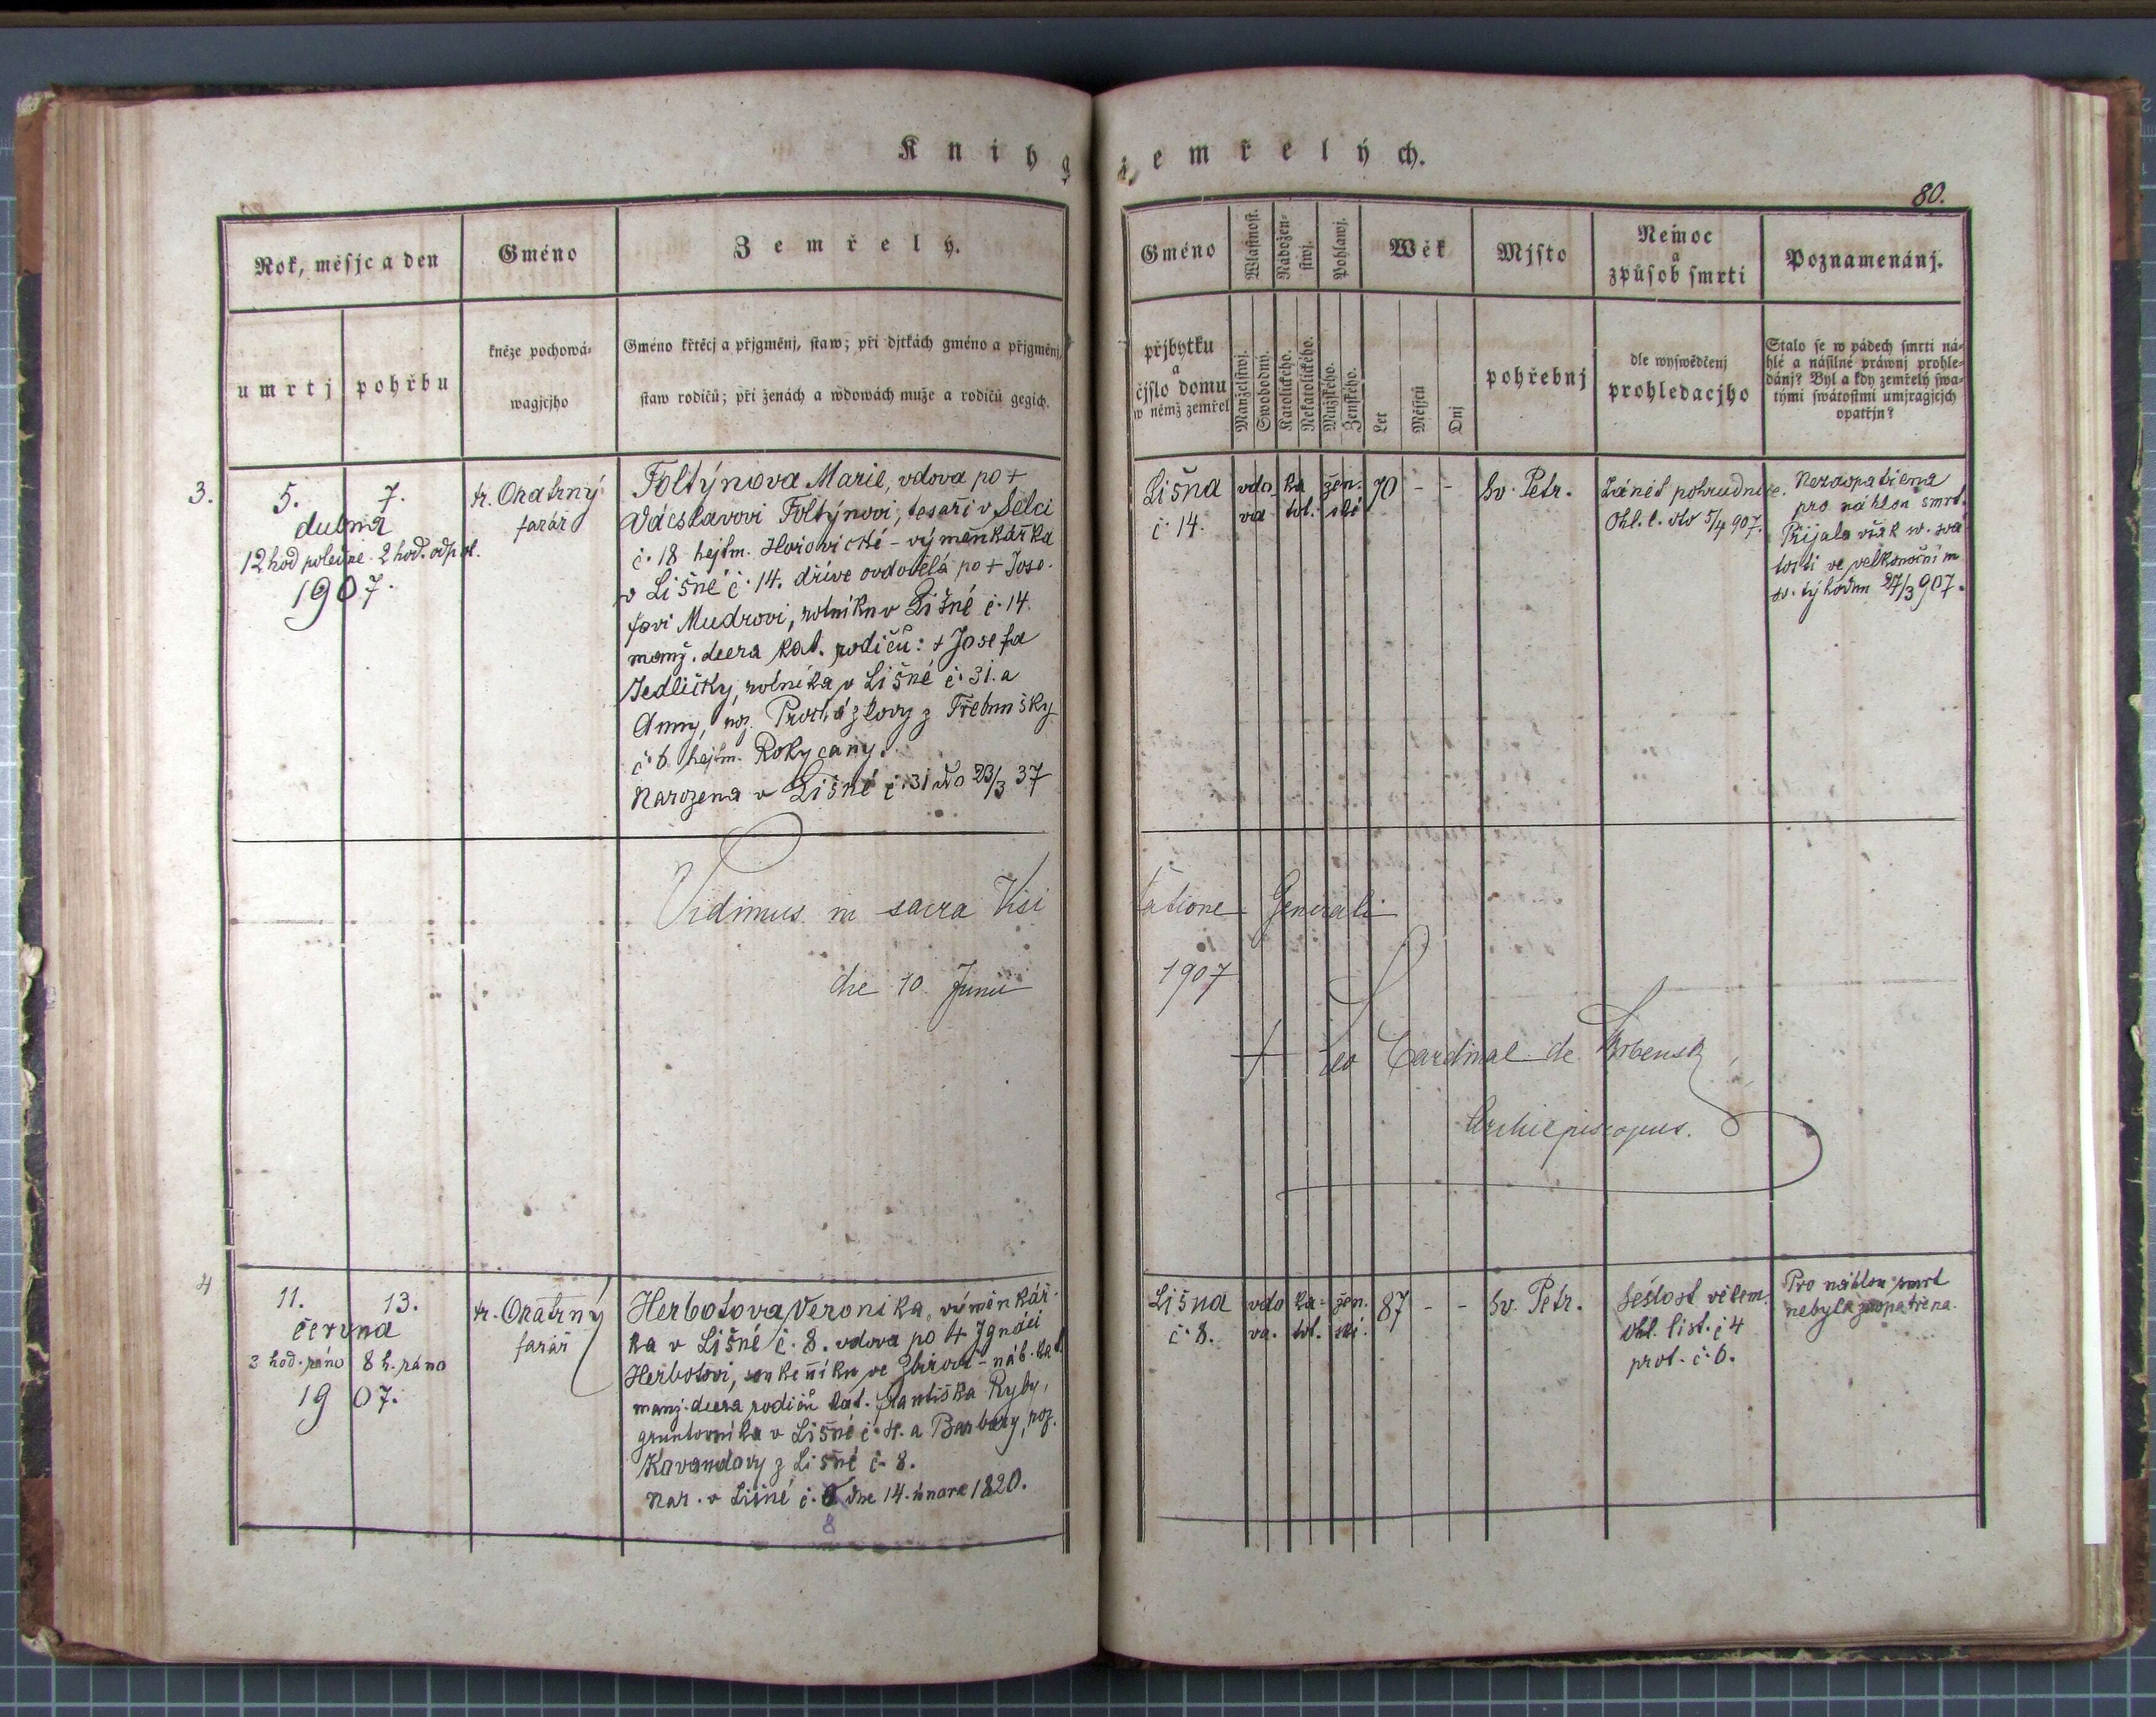 Kniha zemřelých.
80.
Rok, měsjc a den
umrtj
pohřbu
Gméno
kněze pochowá-
wagjcjho
Zemřelý.
Gméno křtěcj a přjgměnj, staw; při djtkách gméno a přjgměnj,
staw rodičů; při ženách a wdowách muže a rodičů gegich.
Gméno
přjbytku
a
čjslo domu
w němž zemřel
Wlastnost.
Manželstwj.
Swobodný.
Nábožen-
stwj.
Katolického.
Nekatolického.
Pohlawj.
Mužského.
Ženského.
Wěk
Let
Měsjců
Dnj
Mjsto
pohřebnj
Nemoc
a
způsob smrti
dle wyswědčenj
prohledacjho
Poznamenánj.
Stalo se w pádech smrti ná-
hlé a násilné práwnj prohle-
dánj? Byl a kdy zemřelý swa-
tými swátostmi umjragjcjch
opatřjn?
3.
5.
7.
dubna
12 hod poledne. 2 hod. odpol.
1907.
fr. Okatrný
farář
Foltýnova Marie, vdova po +
Vácslavovi Foltýnovi, tesaři v Selci
č. 18 hejtm. Hořovické - výměnkářka
v Lišné č. 14. dříve ovdovělá po + Jose-
fovi Mudrovi, rolníku v Lišné č. 14.
manž. dcera kat. rodičů: + Josefa
Jedličky, rolníka v Lišné č. 31. a
Anny, roz. Procházkovy z Třebnušky
č. 6 hejtm. Rokycany.
Narozena v Lišné č. 31 dto 23/3 37
Lišna
č. 14.
vdo
va
ka
tol.
žen.
ské
70
-
-
Sv. Petr.
Zánět pohrudnice.
Ohl. l. dto 5/4 907.
Nezaopatřena
pro náhlou smrt.
Přijala však sv. svá
tosti ve velkonočním
sv. týhodnu 27/3 907.
Vidimus in sacra Visi
tatione Generali
die 10. Junii
1907
+ Leo Cardinal de Skrbensky
Archiepiscopus.
4
11.
13.
června
3 hod. ráno
8 h. ráno
1907.
fr. Okatrný
farář
Herbotova Veronika, výměnkář-
ka v Lišné č. 8. vdova po + Ignáci
Herbotovi, soukeníku ve Zbirově - náb. kat.
manž. dcera rodičů kat. Františka Ryby,
gruntovníka v Lišné č. 4. a Barbory, roz.
Kavandovy z Lišné č. 8.
Nar. v Lišné č. dne 14. února 1820.
8
Lišna
č. 8.
vdo
va.
ka-
tol.
žen.
ské.
87
-
-
Sv. Petr.
Sešlost věkem.
Ohl. list. č 4
prot. č. 6.
Pro náhlou smrt
nebyla zaopatřena.